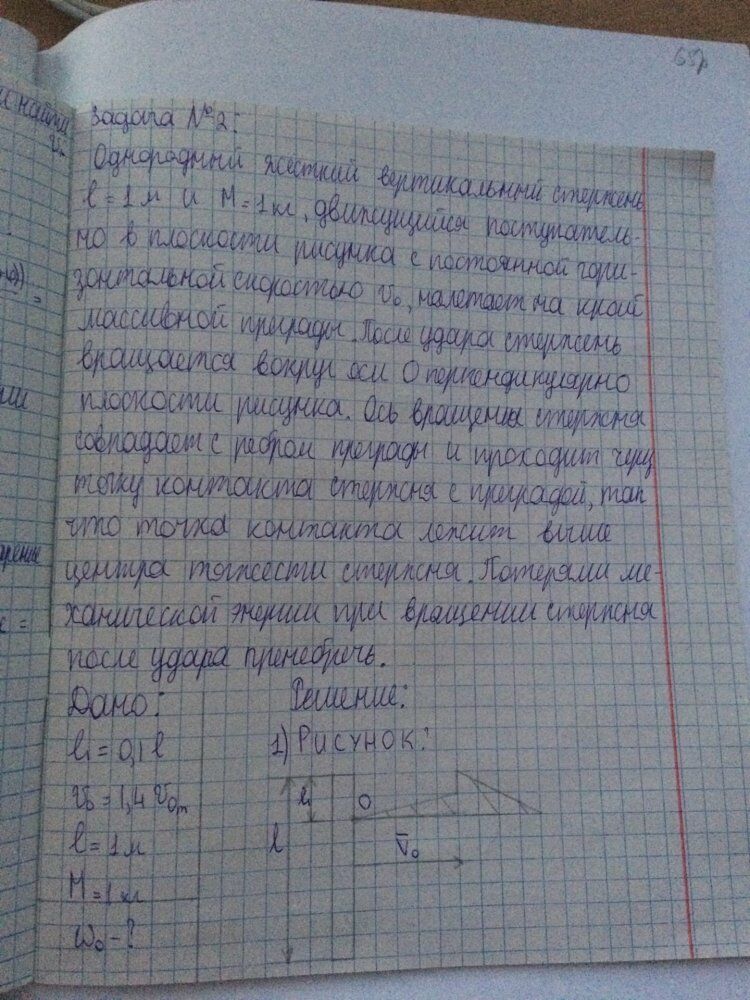 65р
Задача №2:
Однородный жесткий вертикальный стержень
l = 1 м и M = 1 кг, движущийся поступатель-
но в плоскости рисунка с постоянной гори-
зонтальной скоростью v₀, налетает на край
массивной преграды. После удара стержень
вращается вокруг оси О перпендикулярно
плоскости рисунка. Ось вращения стержня
совпадает с ребром преграды и проходит через
точку контакта стержня с преградой, так
что точка контакта лежит выше
центра тяжести стержня. Потерями ме-
ханической энергии при вращении стержня
после удара пренебречь.
Дано: Решение:
l₁ = 0,1 l 1) Рисунок:
v₀ = 1,4 v₀ₘ l₁ O
l = 1 м l v̄₀
M = 1 кг
ω₀ - ?
и найти